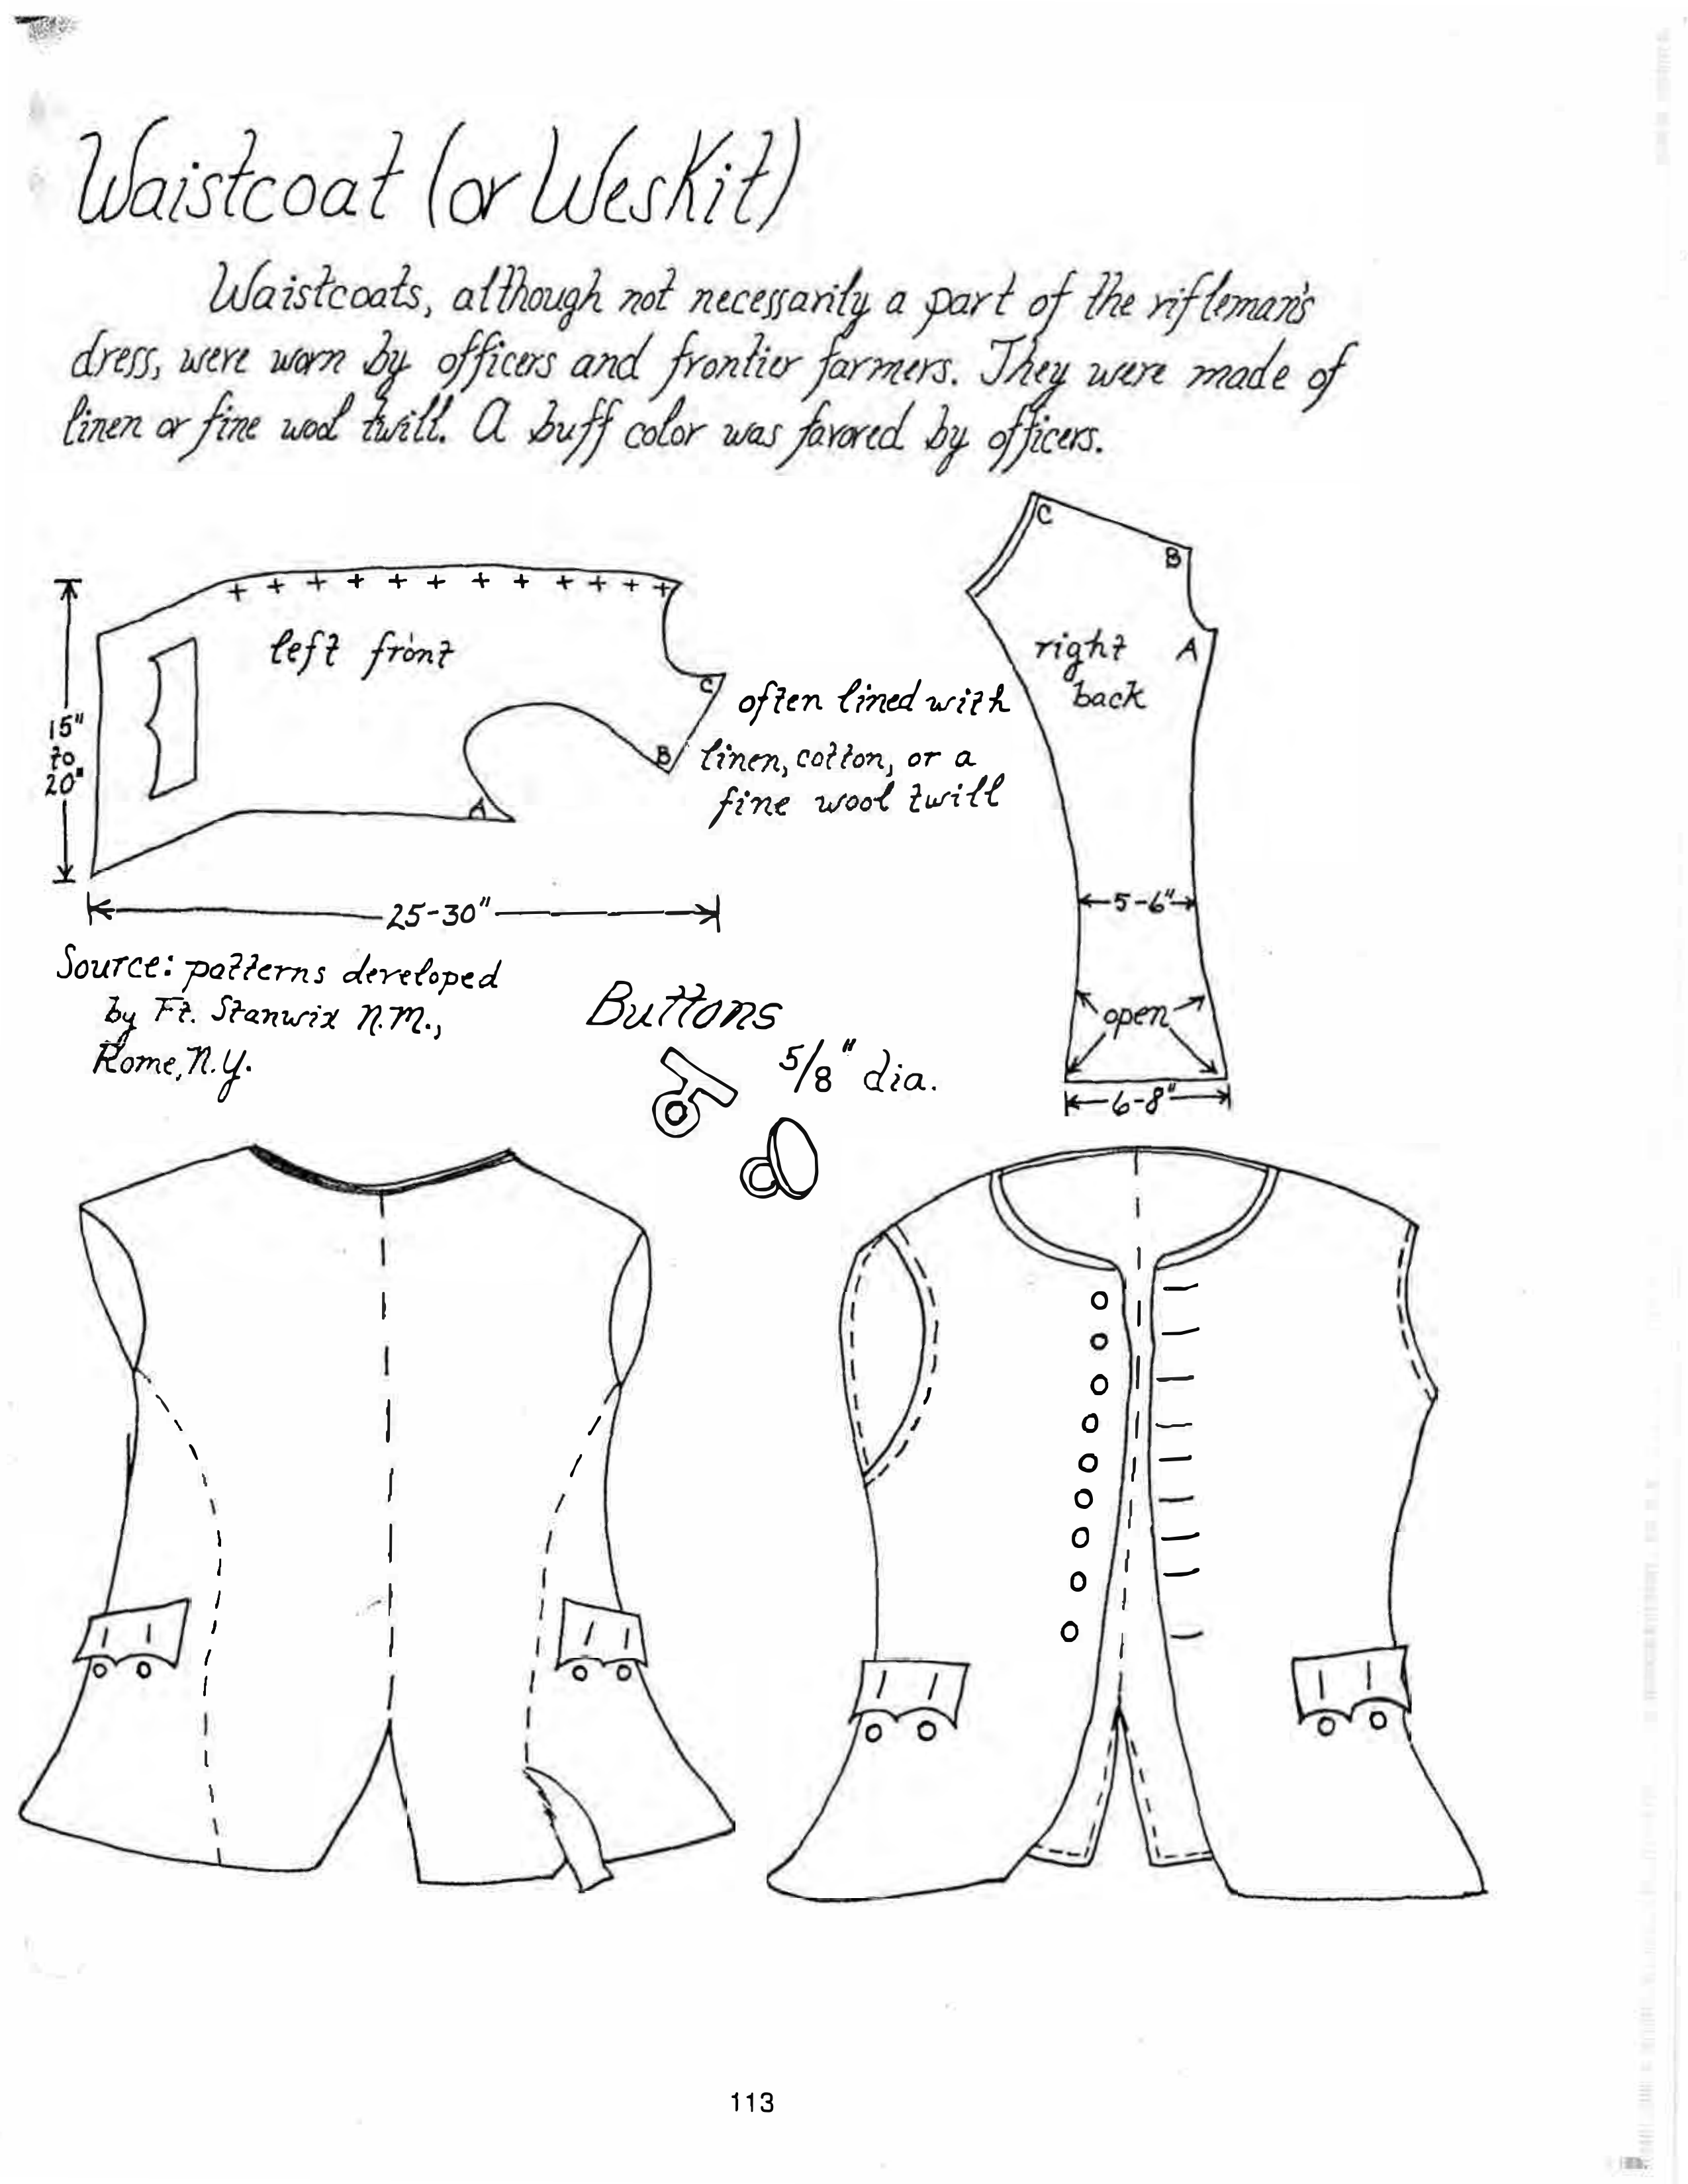 Waistcoat (or Weskit)
Waistcoats, although not necessarily a part of the rifleman's
dress, were worn by officers and frontier farmers. They were made of
linen or fine wool twill. A buff color was favored by officers.
left front
15"
to
20"
A
B
C
25-30"
often lined with
linen, cotton, or a
fine wool twill
C
B
A
right
back
5-6"
open
6-8"
Source: patterns developed
by Ft. Stanwix N.M.,
Rome, N.Y.
Buttons
5/8" dia.
113